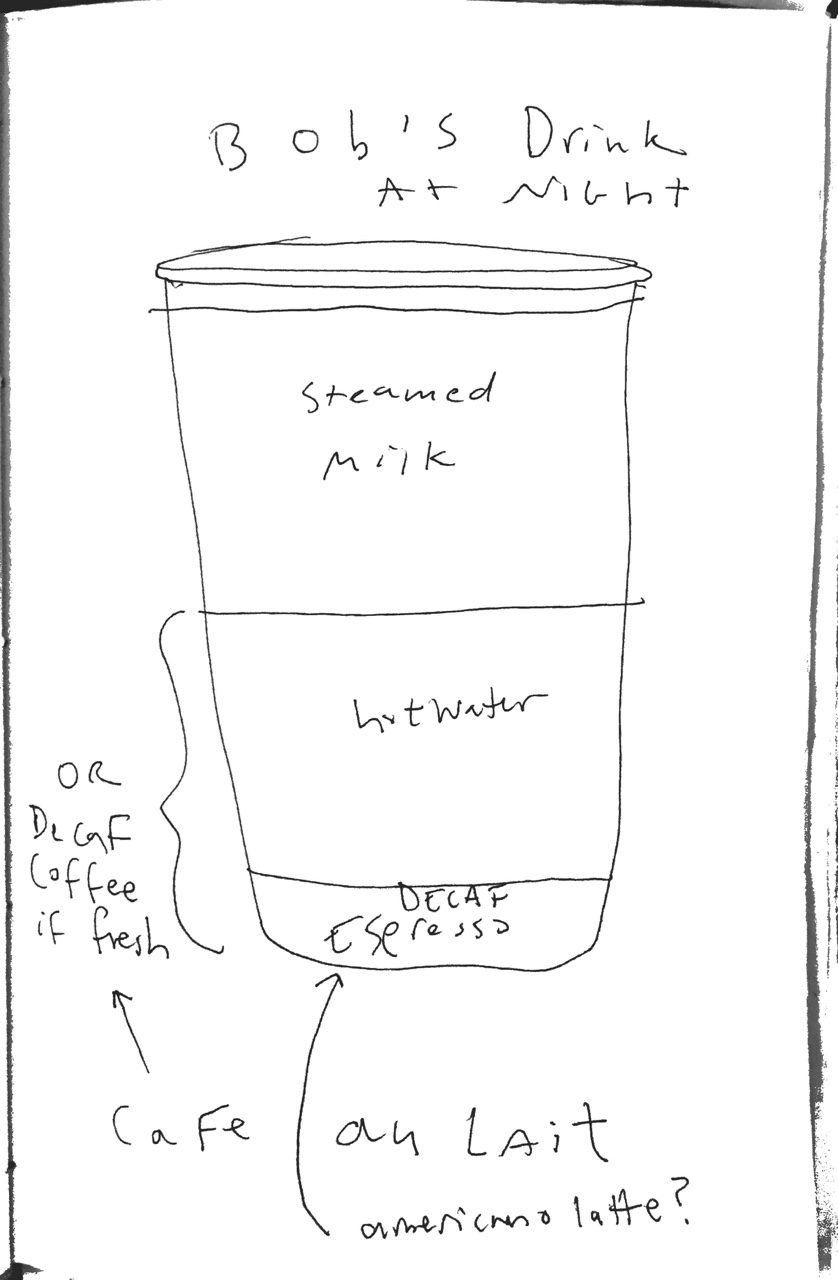 Bob's Drink
At Night
Steamed
Milk
hot water
OR
Decaf
Coffee
if fresh
DECAF
Espresso
Cafe au Lait
americano latte?